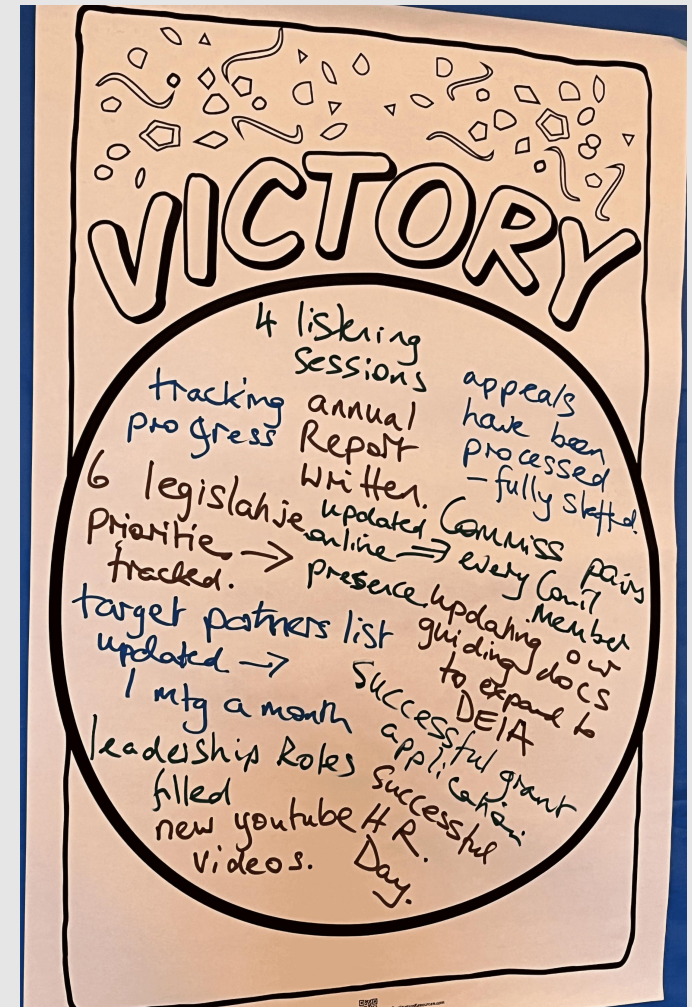 VICTORY
4 listening
sessions
tracking
progress
annual
Report
written.
appeals
have been
processed
- fully staffed.
6 legislative
Priorities →
tracked.
updated
online ⇒
presence.
Commiss pairs
every Com'l
Member
target partners list
updated →
1 mtg a month
updating our
guiding docs
to expand to
DEIA
Successful grant
application
leadership Roles
filled
new youtube
videos.
Successful
H R.
Day.